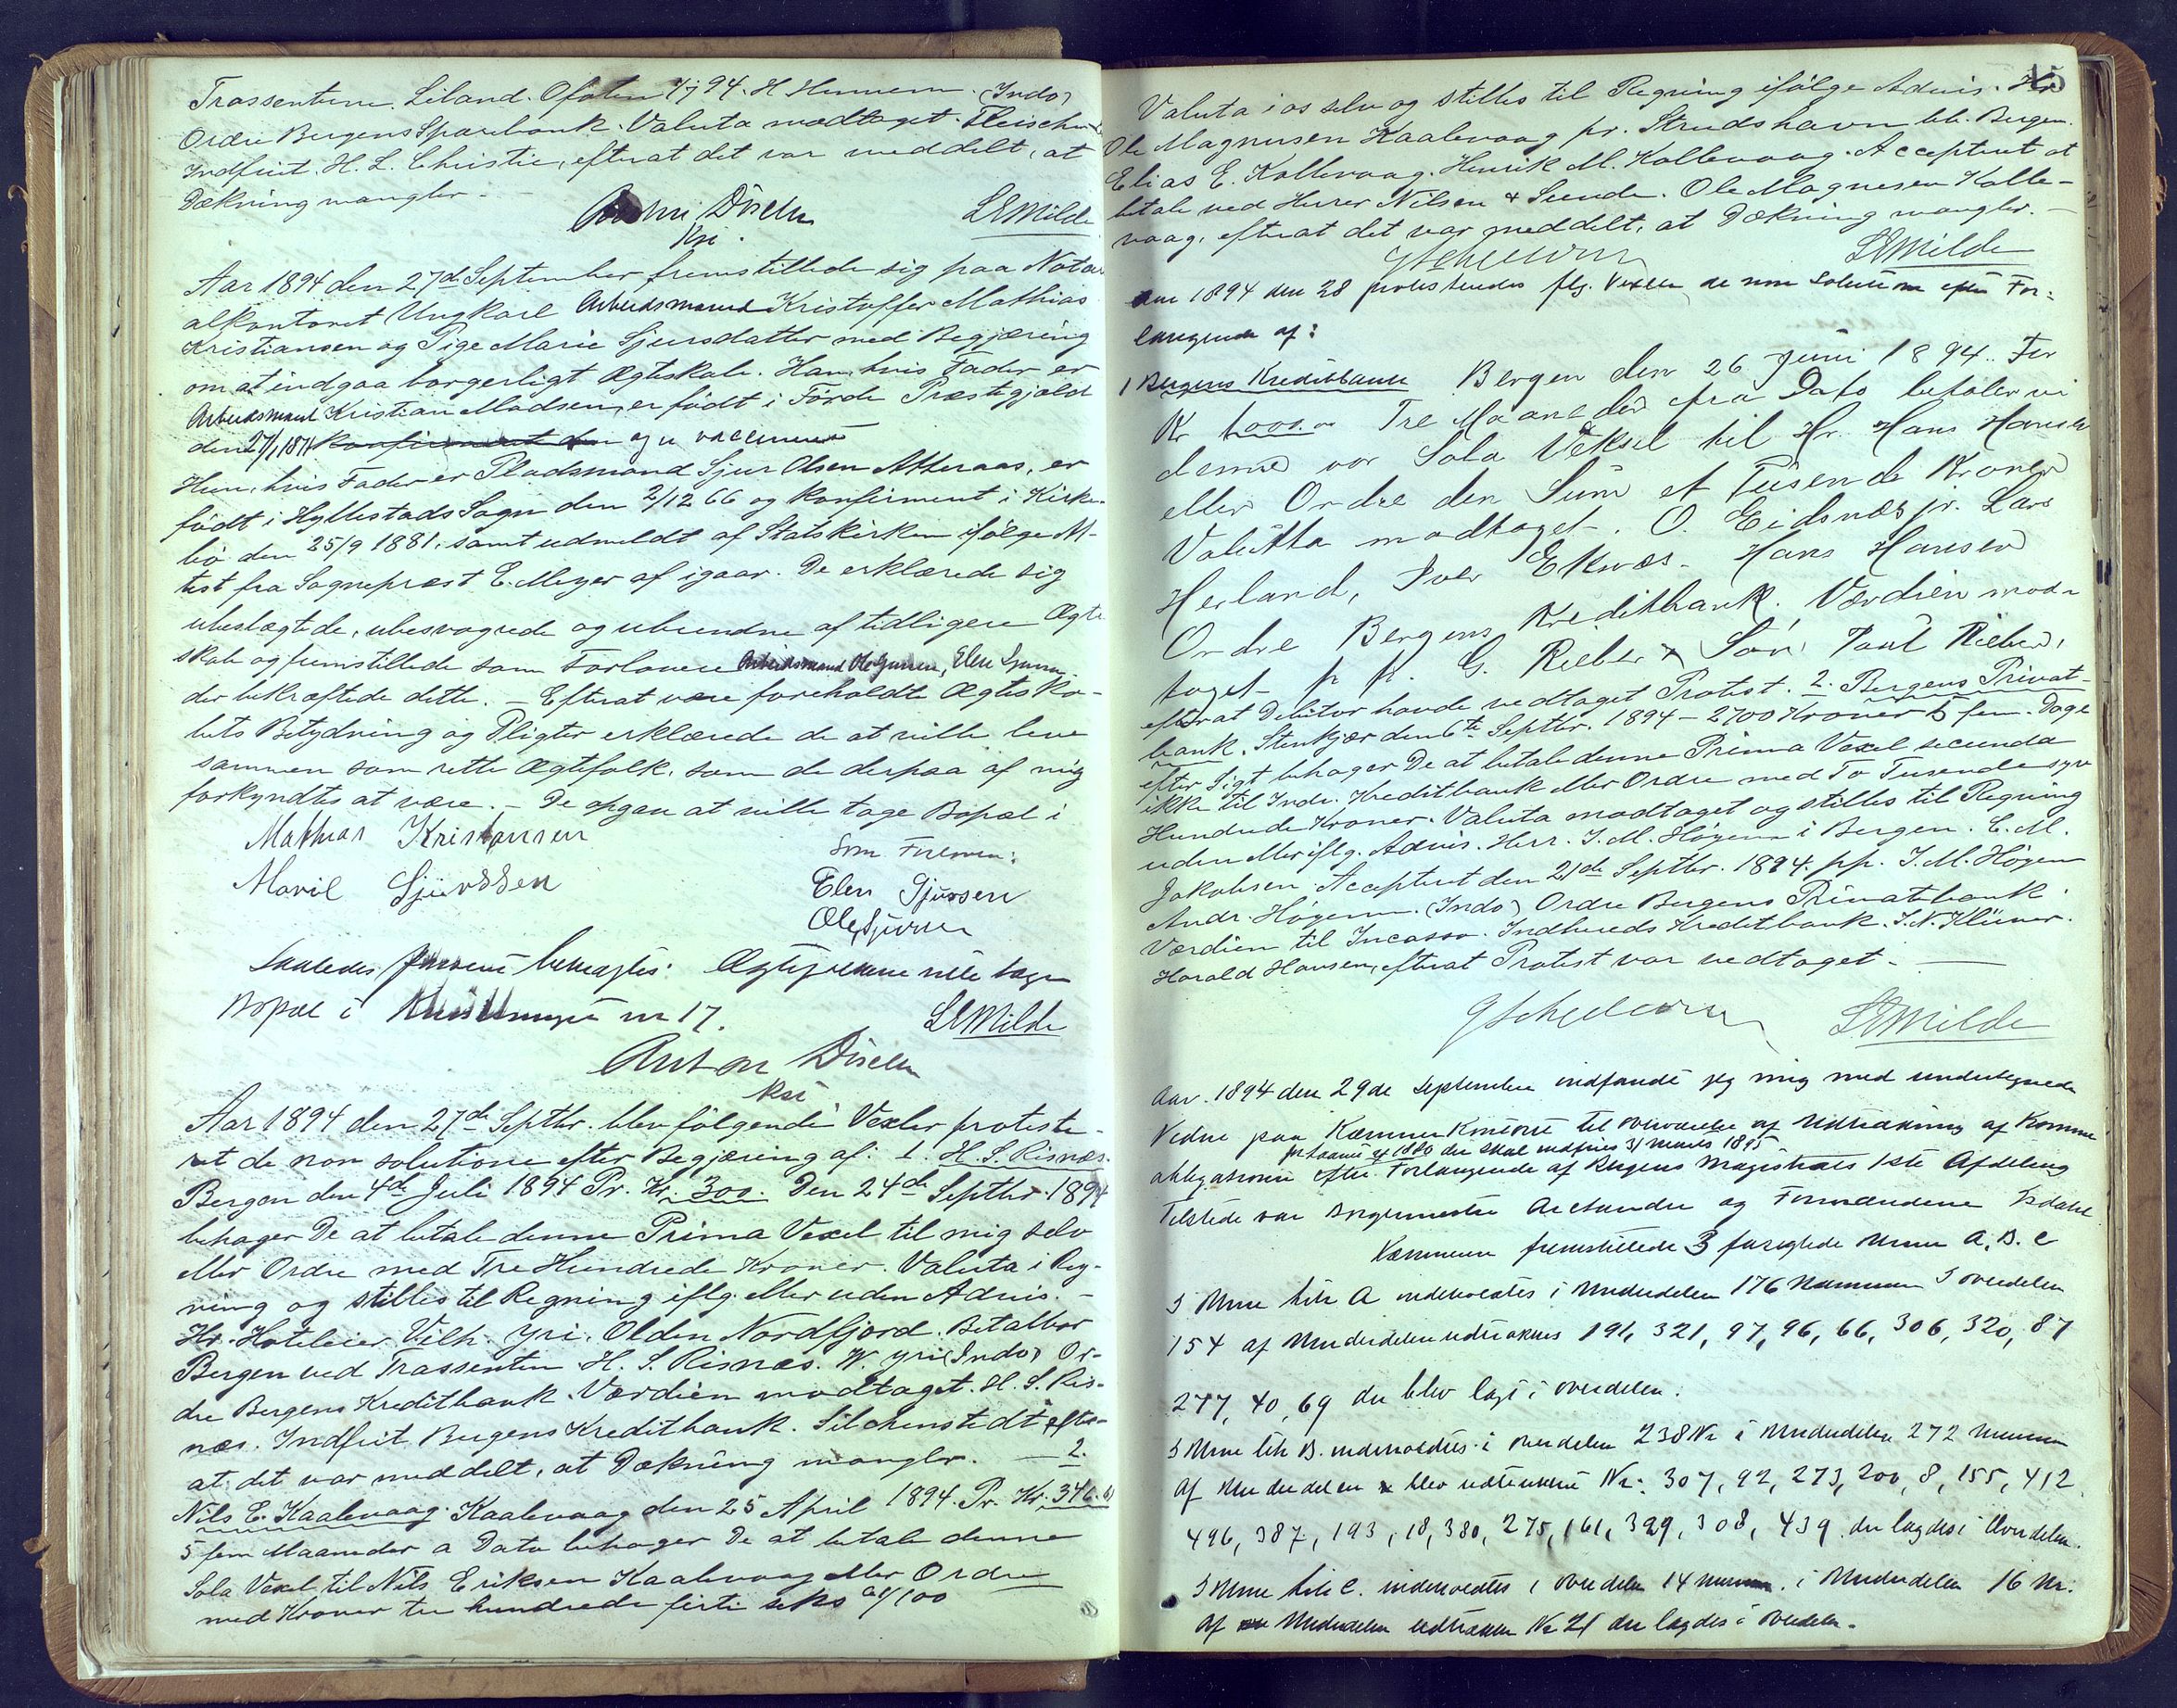 Trassenten. Liland. Ofoten 7/7 94. H. Hennem. (Indo)
Ordre Bergens Sparebank. Valuta modtaget. Fleischer
Indfriet. H. L. Christie, efterat det var meddelt, at
Dækning mangler. -
LEMilde
Kst.
Aar 1894 den 27de September fremstillede sig paa Notari-
alkontoret Ungkarl Arbeidsmand Kristoffer Mathias
Kristiansen og Pige Marie Sjursdatter med Begjæring
om at indgaa borgerligt Ægteskab. Han, hvis Fader er
Arbeidsmand Kristian Madsen, er født i Førde Præstegjæld
den 27/1 1871 konfirmeret den og er vaccineret
Hun, hvis Fader er Pladsmand Sjur Olsen Atteraas, er
født i Hyllestads Sogn den 2/12 66 og konfirmeret i Kirke-
bø den 25/9 1881, samt udmeldt af Statskirken ifølge At-
test fra Sogneprest E. Meyer af igaar. De erklærede sig
ubeslægtede, ubesvogrede og ubundne af tidligere Ægte-
skab og fremstillede som Forlovere Arbeidsmand Ole Sjursen, Elen Sjursen
der bekræftede dette. - Efterat være foreholdt Ægteska-
bets Betydning og Pligter erklærede de at ville leve
sammen som rette Ægtefolk, som de derpaa af mig
forkyndtes at være. - De opgav at ville tage Bopæl i
Mathias Kristansen
Som Forlovere:
Marie Sjürssen
Elen Sjurssen
Ole Sjursen
Saaledes passeret bekræftes. Ægtefolkene ville tage
Bopæl i nr 17.
LEMilde
Anton
Kst
Aar 1894 den 27de Septbr. blev følgende Vexler proteste-
ret de non solutione efter Begjæring af: 1. H. S. Risnæs.
Bergen den 4de Juli 1894 Pr. Kr. 300. Den 24de Septbr. 1894
behager De at betale denne Prima Vexel til mig selv
eller Ordre med Tre Hundrede Kroner. Valuta i Reg-
ning og stilles til Regning iflg. eller uden Advis. -
Hr. Hoteleier Vilh. Yri. Olden Nordfjord. Betalbar
Bergen ved Trassenten H. S. Risnæs. W. Yri (Indo) Or-
dre Bergens Kreditbank. Værdien modtaget. H. S. Ris-
næs. Indfriet Bergens Kreditbank. Silchenstedt efter-
at det var meddelt, at Dækning mangler. - 2.
Nils E. Kaalevaag. Kaalevaag den 25 April 1894. Pr. Kr. 346.61
5 fem Maaneder a Dato behager De at betale denne
Sola Vexel til Nils Eriksen Kaalevaag eller Ordre
med Kroner tre hundrede firti seks 61/100
15
Valuta i os selv og stilles til Regning ifølge Advis. Hr
Ole Magnusen Kaalevaag pr. Strudshavn bb. Bergen.
Elias E. Kollevaag. Henrik M. Kollevaag. Acceptert at
betale ved Herrer Nilsen & Sunde. Ole Magnesen Kolle-
vaag, efterat det var meddelt, at Dækning mangler. -
LEMilde
Aar 1894 den 28 protesteredes flg. Vexler de non solutione efter For-
langende af:
1 Bergens Kreditbank Bergen den 26 Juni 1894. For
Kr 1000.00 Tre Maaneder fra Dato betaler vi
denne vor Sola Veksel til Hr. Hans Hansen
eller Ordre den Sum et Tusende Kroner
Valutta modtaget. O. Eidsnæs pr. Lars
Herland, Iver Eknæs. Hans Hansen
Ordre Bergens Kreditbank. Værdien mod-
taget p p. G. Rieber & Søn. Paul Rieber,
efterat Debitor havde vedtaget Protest. 2. Bergens Privat-
bank. Stenkjær den 6te Septbr. 1894 - 2700 Kroner 5 fem. Dage
efter Sigt behager De at betale denne Prima Vexel secunda
ikke til Indr. Kreditbank eller Ordre med To Tusende syv
Hundrede Kroner. Valuta modtaget og stilles til Regning
uden eller iflg. Advis. Herr. I. M. Høgem i Bergen. C. M.
Jakobsen. Acceptert den 21de Septbr. 1894. pp. I. M. Høgem
Andr. Høgem. (Indo) Ordre Bergens Privatbank
Værdien til Incasso. Indherreds Kreditbank. I. N. Klüwer.
Harald Hansen, efterat Protest var vedtaget. -
LEMilde
Aar. 1894 den 29de September indfandt jeg mig med undertegnede
Vidne paa Kæmnerkontoret til Overværelse af Udtrækning af Kommune
for Laanet af 1880 der skal indfries 31 Marts 1895
obligationer efter Forlangende af Bergens Magistrats 1ste Afdeling
Tilstede var Borgermester Arctander og Formændene Isdahl
Kæmneren fremstillede 3 forseglede Urner A, B. C
I Urne Litr A indeholdtes i Underdelen 176 Nummere I overdelen
154 af Underdelen udtrakkes 191, 321, 97, 96, 66, 306, 320, 87
277, 40, 69 der blev lagt i overdelen.
I Urne litr B. indeholdtes i Overdelen 238 Nr i Underdelen 272 Nummere
Af Underdelen blev udtrukket Nr: 307, 92, 273, 200, 8, 155, 412
496, 387, 193, 18, 380, 275, 161, 329, 308, 439. der lagdes i Overdelen.
I Urne litr C. indeholdtes i Overdelen 14 Numre. i Underdelen 16 Nr.
Af Underdelen udtrakkes Nr 21 der lagdes i Overdelen.